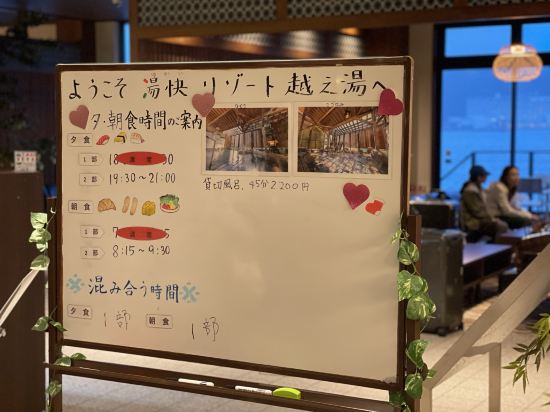 ようこそ 湯快リゾート 越之湯へ
夕・朝食時間のご案内
夕食
1部 18 満席 0
2部 19:30～21:00
朝食
1部 7 満席 5
2部 8:15～9:30
貸切風呂、45分2,200円
混み合う時間
夕食 1部 朝食 1部